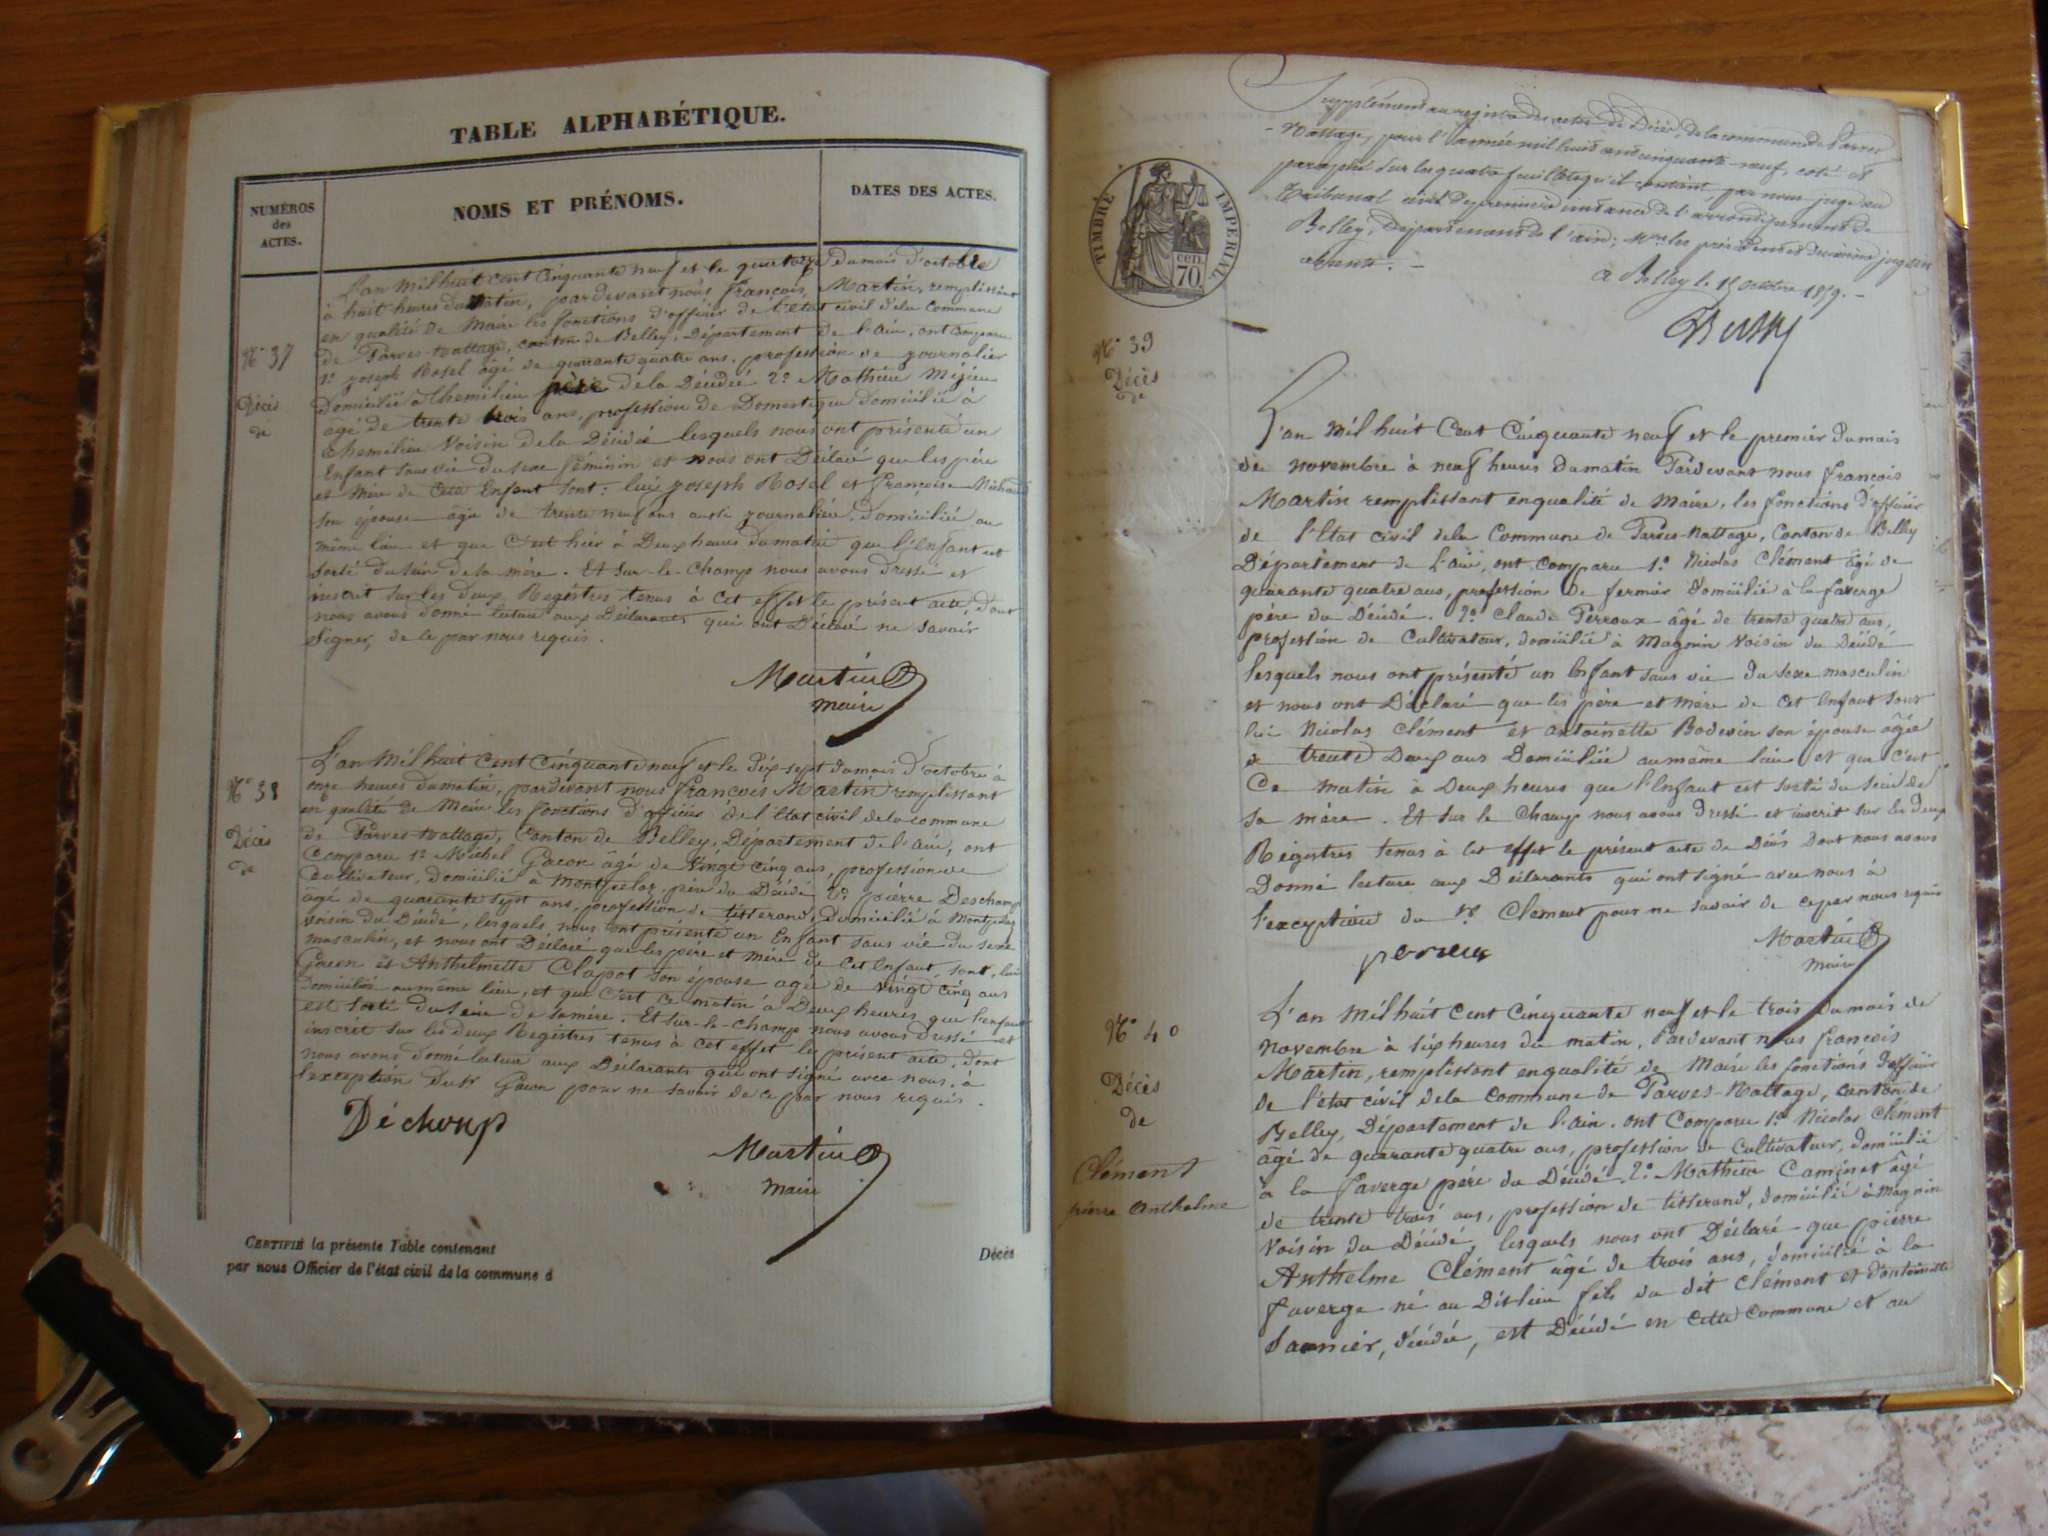 TABLE ALPHABÉTIQUE.
NUMÉROS
des
ACTES.
NOMS ET PRÉNOMS.
DATES DES ACTES.
L'an mil huit cent cinquante neuf et le quatorze du mois d'octobre
à huit heures du matin, pardevant nous françois Martin, remplissant
en qualité de Maire les fonctions d'officier de l'Etat civil dela Commune
de Parves-Nattage, canton de Belley, Département de l'ain, ont comparu
N° 37
1° joseph Rosel âgé de quarante quatre ans, profession de journalier
Domicilié à Chemilieu père de la Décédée 2° Mathieu
Décès
de
âgé de trente trois ans, profession de Domestique domicilié à
Chemilieu Voisin dela Décédée lesquels nous ont présenté un
Enfant sans vie du sexe féminin et nous ont Déclaré que les père
et Mère de cette Enfant sont : lui joseph Rosel et françoise
son épouse âgée de trente neuf ans aussi journalière, domiciliée au
même lieu et que c'est hier à Deux heures du matin que l'enfant est
sorti du sein de sa mère. Et sur-le-champ nous avons dressé et
inscrit sur les deux Registres tenus à cet effet le présent acte, dont
nous avons donné lecture aux Déclarants, qui ont Déclaré ne savoir
Signer, de ce par nous requis.
Martin
maire
L'an Mil huit Cent Cinquante neuf et le Dix-sept du mois d'octobre à
N° 38
onze heures du matin, pardevant nous françois Martin remplissant
en qualité de Maire les fonctions d'officier de l'Etat civil dela commune
Décès
de
de Parves-Nattage, Canton de Belley, Département de l'ain, ont
Comparu 1° Michel Gacon âgé de vingt cinq ans, profession de
Cultivateur, domicilié à Montpelaz père du Décédé 2° pierre Deschamp
âgé de quarante sept ans, profession de tisserand, domicilié à Montpelaz
voisin du Décédé, lesquels nous ont présenté un Enfant sans vie du sexe
masculin, et nous ont Déclaré que les père et mère de cet Enfant sont, lui
Gacon et Anthelmette Clapot son épouse âgée de vingt cinq ans
domiciliée au même lieu, et que c'est ce matin à Deux heures que l'enfant
est sorti du sein de sa mère. Et sur-le-champ nous avons dressé et
inscrit sur les deux Registres tenus à cet effet le présent acte, dont
nous avons donné lecture aux Déclarants qui ont signé avec nous à
l'exception du Sr Gacon pour ne savoir de ce par nous requis.
Déchoup
Martin
Maire
CERTIFIÉ la présente Table contenant
Décès
par nous Officier de l'état civil de la commune d
Supplément au registre des actes de Décès de la commune de Parves
-Nattage, pour l'année mil huit cent cinquante-neuf, coté et
paraphé sur les quatre feuillets qu'il contient, par nous juge au
Tribunal civil de première instance de l'arrondissement de
Belley, Département de l'ain;
absents. -
a Belley le 15 octobre 1859. -
TIMBRE IMPERIAL
70 cen.
N° 39
Décès
de
L'an Mil huit Cent Cinquante neuf et le premier du mois
de novembre à neuf heures du matin Pardevant nous françois
Martin remplissant en qualité de Maire, les fonctions d'officier
de l'Etat civil dela Commune de Parves-Nattage, Canton de Belley
Département de l'ain, ont comparu 1° Nicolas Clément âgé de
quarante quatre ans, profession de fermier domicilié à la faverge
père du Décédé. 2° Claude Perroux âgé de trente quatre ans,
profession de Cultivateur, domicilié à Magnin Voisin du Décédé
lesquels nous ont présenté un Enfant sans vie du sexe masculin
et nous ont Déclaré que les père et mère de cet Enfant sont
lui Nicolas Clément et Antoinette Bodevin son épouse âgée
de trente Deux ans Domiciliée au même lieu et que c'est
Ce matin à Deux heures que l'Enfant est sorti du sein de
sa mère. Et sur le Champ nous avons dressé et inscrit sur les deux
Régistres tenus à cet effet le présent acte de Décès dont nous avons
Donné lecture aux Déclarants qui ont signé avec nous à
l'exception du Sr Clément pour ne savoir de ce par nous requis
Martin
maire
N° 40
L'an Mil huit Cent Cinquante neuf et le trois du mois de
novembre à six heures du matin, Pardevant nous françois
Décès
de
Clément
pierre Anthelme
Martin, remplissant en qualité de Maire les fonctions d'officier
de l'état civil dela commune de Parves-Nattage, canton de
Belley, Département de l'ain. ont Comparu 1° Nicolas Clément
âgé de quarante quatre ans, profession de Cultivateur, domicilié
à la faverge père du Décédé. 2° Mathieu Caminet âgé
de trente trois ans, profession de tisserand, domicilié à Magnin
Voisin du Décédé, lesquels nous ont Déclaré que pierre
Anthelme Clément âgé de trois ans, domicilié à la
faverge né au Dit lieu fils du dit Clément et d'antoinette
décédée, est Décédé en cette commune et au